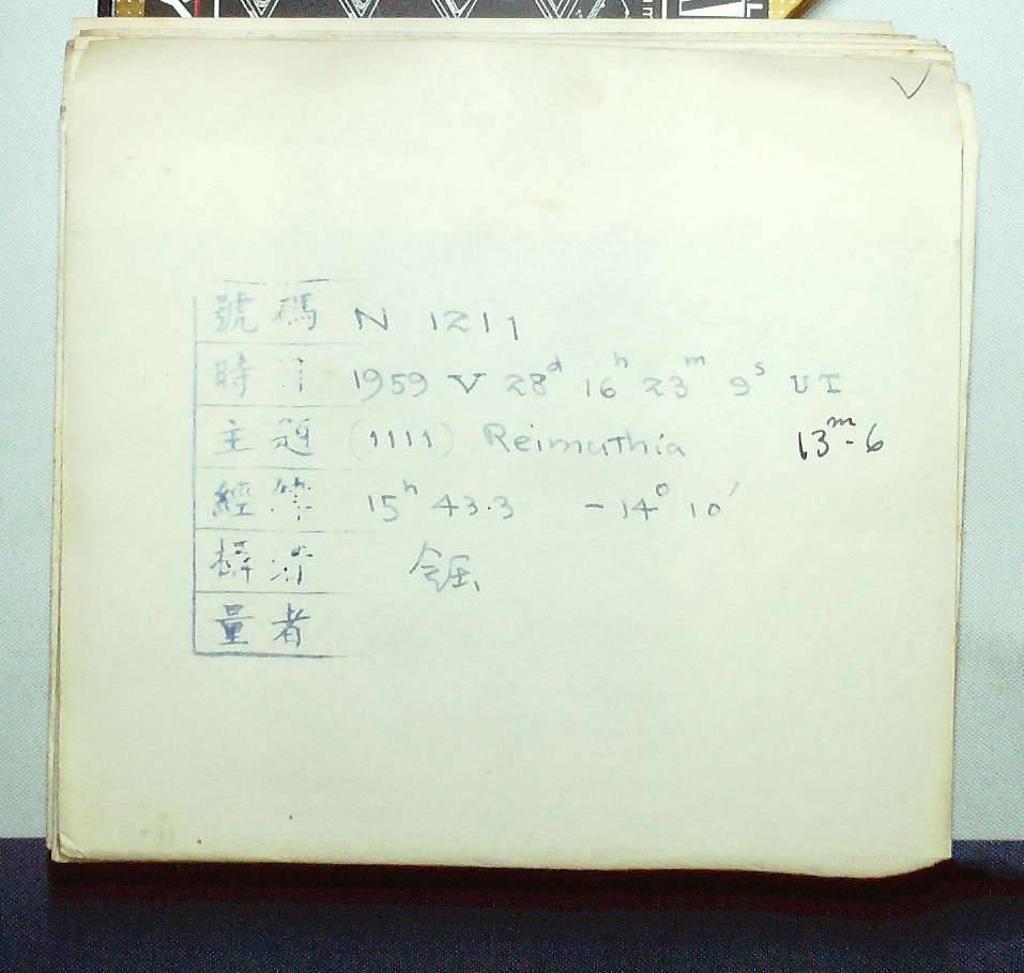 V
號碼 N 1211
時 1959 V 28ᵈ 16ʰ 23ᵐ 9ˢ UT
主題 (1111) Reimuthia 13ᵐ.6
經緯 15ʰ 43.3 -14° 10′
量者